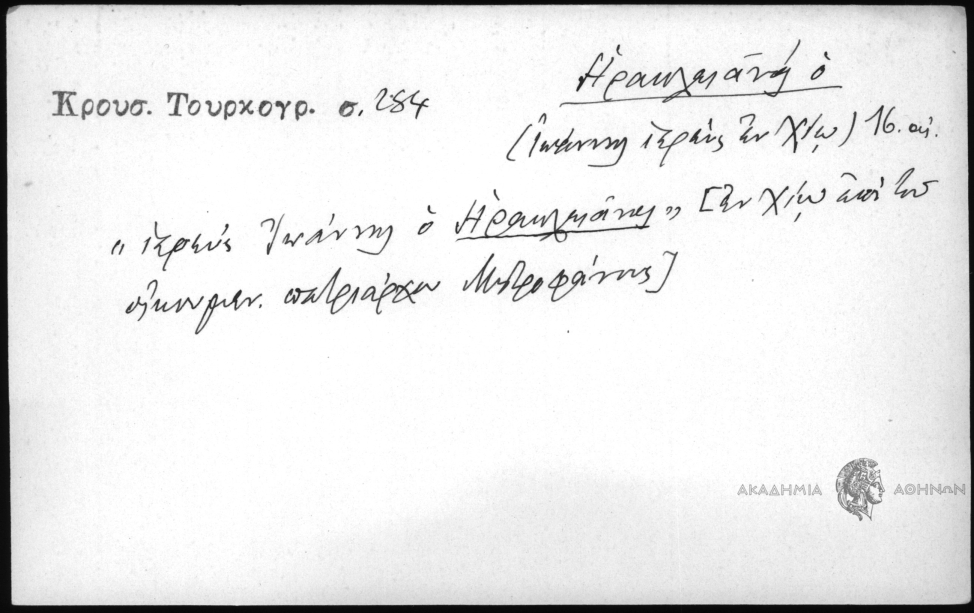 Ἡρακλειάνης ὁ
Κρουσ. Τουρκογρ. σ. 284
(Ἰωάννης ἱερεὺς ἐν Χίῳ) 16. αἰ.
„ ἱερεὺς Ἰωάννης ὁ Ἡρακλειάνης „ [ἐν Χίῳ ἐπὶ τοῦ
οἰκουμεν. πατριάρχου Μητροφάνους]
ΑΚΑΔΗΜΙΑ ΑΘΗΝΩΝ